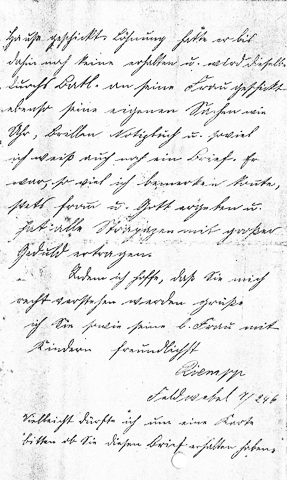 Hause geschickt. Löhnung hätte er bis
dahin noch keine erhalten u. wird dieselbe
durchs Batl. an seine Frau geschickt
ebenso seine eigenen Sachen wie
Uhr, Brillen Notizbuch u. soviel
ich weiß auch noch ein Brief. Er
war, so viel ich bemerken konnte,
stets fromm u. Gott ergeben u.
hat alle Strapazen mit großer
Geduld ertragen.
Indem ich hoffe, daß Sie mich
recht verstehen werden grüße
ich Sie sowie seine l. Frau mit
Kindern freundlichst
Kiempp
Feldwebel 7/246
Vielleicht dürfte ich um eine Karte
bitten ob Sie diesen Brief erhalten haben.